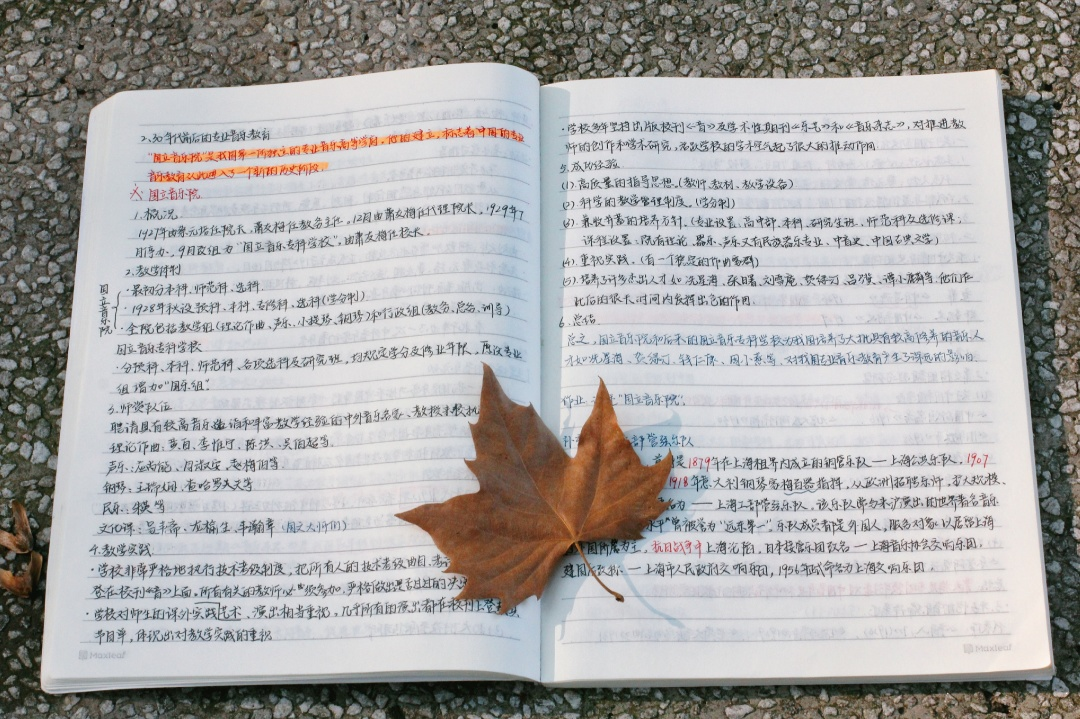 2、30年代前后的专业音乐教育
"国立音乐院"是我国第一所独立的专业音乐高等学府，他的建立，标志着中国的专业
音乐教育从此进入了一个新的历史阶段。
国立音乐院
1. 概况
1927年由蔡元培任院长，萧友梅任教务主任。12月由萧友梅任代理院长，1929年7
月停办，9月改组为"国立音乐专科学校"，由萧友梅任校长。
2. 教学体制
国立音乐院
·最初分本科、师范科、选科
·1928年秋设预科、本科、专修科、选科(学分制)
·全院包括教学组(理论作曲、声乐、小提琴、钢琴)和行政组(教务、总务、训导)
国立音乐专科学校
·分预科、本科、师范科、各项选科及研究班，均规定学分及修业年限，原设专业
组增加"国乐组"
3. 师资队伍
聘请具有较高音乐造诣和丰富教学经验的中外音乐名家、教授来执
理论作曲：黄自、李惟宁、陈洪、吴伯超等
声乐：应尚能、周淑安、赵梅伯等
钢琴：王瑞娴、查哈罗夫等
民乐：朱英等
文化课：易韦斋、龙榆生、韦瀚章（国文大师们）
4. 教学实践
·学校非常严格地执行技术考级制度，把所有人的技术考级曲目、
登在校刊《音》上面，所有有关的教师必须参加，严格做出是否过的决
·学校对师生的课外实践艺术、演出相当重视，几乎所有的演出都在校刊上登
节目单，体现出对教学实践的重视
Maxleaf
·学校多年坚持出版校刊《音》及学术性期刊《乐艺》和《音乐杂志》，对推进教
师的创作和学术研究，活跃学校的学术空气起了很大的推动作用
5. 成功经验
(1). 高质量的指导思想。(教师、教材、教学设备)
(2). 科学的教学管理制度。(学分制)
(3). 兼收并蓄的培养方针。(专业设置：高中部、本科、研究生班、师范科及选修课；
课程设置：既有理论、器乐、声乐又有民族音乐专业，中音史、中国古典文学)
(4). 重视实践。(有一个稳定的作曲家群)
(5). 培养了许多杰出人才如冼星海、张曙、刘雪庵、贺绿汀、吕骥、谭小麟等，他们在
此后的很长时间内发挥出各的作用
6. 总结
总之，国立音乐院和后来的国立音乐专科学校为我国培养了大批具有较高修养的音乐人
才如冼星海、贺绿汀、钱仁康、周小燕等，对我国专业音乐教育产生了深远的影响。
作业："国立音乐院"
部管弦乐队
是1879年在上海租界内成立的铜管乐队——上海公共乐队。1907
1918年意大利钢琴家梅百器指挥，从欧洲招聘乐许，扩大规模、
名为——上海工部管弦乐队，该乐队常力求演出的世界著名音乐
水平"曾被誉为"远东第一"，乐队成员都是外国人，服务对象以居留上海
国侨居为主，抗日战争中上海沦陷，日本接管乐团改名——上海音乐协会交响乐团。
建国后改称：——上海市人民政府交响乐团，1956年或命名为上海交响乐团。
Maxleaf